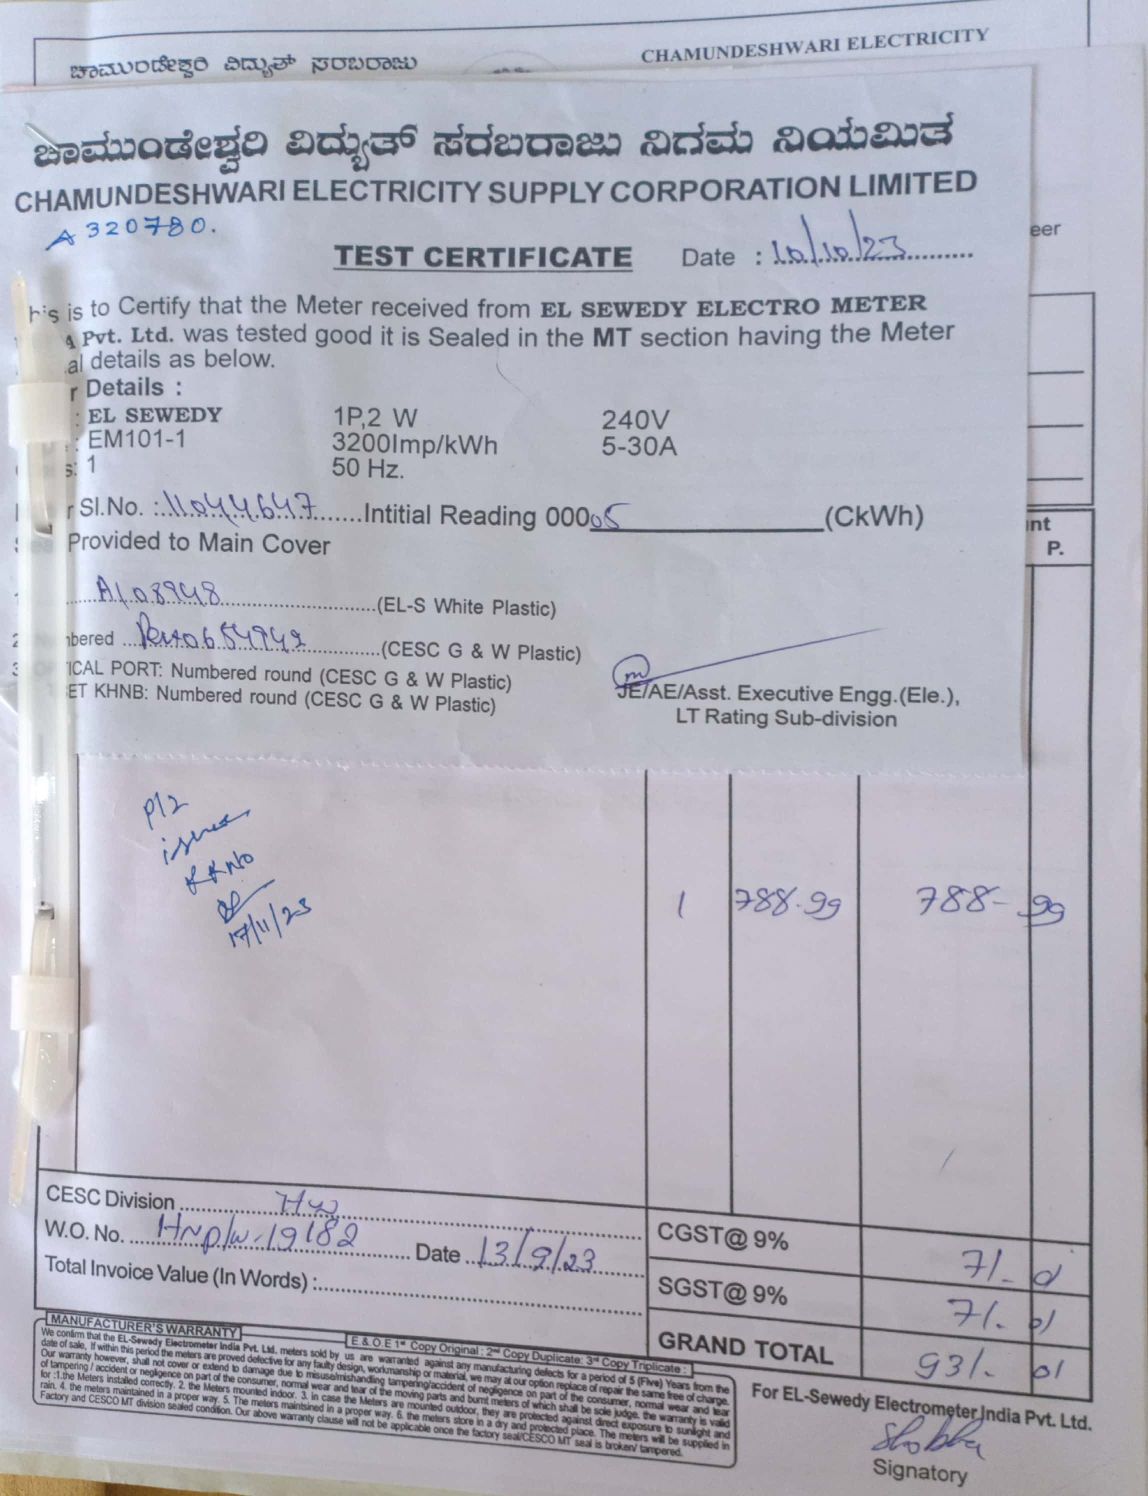 ಚಾಮುಂಡೇಶ್ವರಿ ವಿದ್ಯುತ್ ಸರಬರಾಜು
CHAMUNDESHWARI ELECTRICITY
ಚಾಮುಂಡೇಶ್ವರಿ ವಿದ್ಯುತ್ ಸರಬರಾಜು ನಿಗಮ ನಿಯಮಿತ
CHAMUNDESHWARI ELECTRICITY SUPPLY CORPORATION LIMITED
A 320780.
TEST CERTIFICATE Date : 10/10/23
his is to Certify that the Meter received from EL SEWEDY ELECTRO METER
Pvt. Ltd. was tested good it is Sealed in the MT section having the Meter
al details as below.
r Details :
: EL SEWEDY 1P,2 W 240V
: EM101-1 3200Imp/kWh 5-30A
s: 1 50 Hz.
r Sl.No. : 11044647 Intitial Reading 00005 (CkWh)
Provided to Main Cover
A108948 (EL-S White Plastic)
bered 0654942 (CESC G & W Plastic)
ICAL PORT: Numbered round (CESC G & W Plastic)
ET KHNB: Numbered round (CESC G & W Plastic)
JE/AE/Asst. Executive Engg.(Ele.),
LT Rating Sub-division
eer
nt
P.
P/2
issue
RRNO
17/11/23
1 788-99 788-99
CESC Division
W.O. No. 19182 Date 13/9/23
Total Invoice Value (In Words) :
CGST@ 9% 71-01
SGST@ 9% 71-01
GRAND TOTAL 931-01
MANUFACTURER'S WARRANTY E & O E 1st Copy Original : 2nd Copy Duplicate: 3rd Copy Triplicate :
We confirm that the EL-Sewedy Electrometer India Pvt. Ltd. meters sold by us are warranted against any manufacturing defects for a period of 5 (Five) Years from the
date of sale, If within this period the meters are proved defective for any faulty design, workmanship or material, we may at our option replace of repair the same free of charge.
Our warranty however, shall not cover or extend to damage due to misuse/mishandling tampering/accident of negligence on part of the consumer, normal wear and tear
of tampering / accident or negligence on part of the consumer, normal wear and tear of the moving parts and burnt meters of which shall be sole judge. the warranty is valid
for :1.the Meters installed correctly. 2. the Meters mounted indoor. 3. in case the Meters are mounted outdoor, they are protected against direct exposure to sunlight and
rain. 4. the meters maintained in a proper way. 5. The meters maintsined in a proper way. 6. the meters store in a dry and protected place. The meters will be supplied in
Factory and CESCO MT division sealed condition. Our above warranty clause will not be applicable once the factory seal/CESCO MT seal is broken/ tampered.
For EL-Sewedy Electrometer India Pvt. Ltd.
Shobha
Signatory